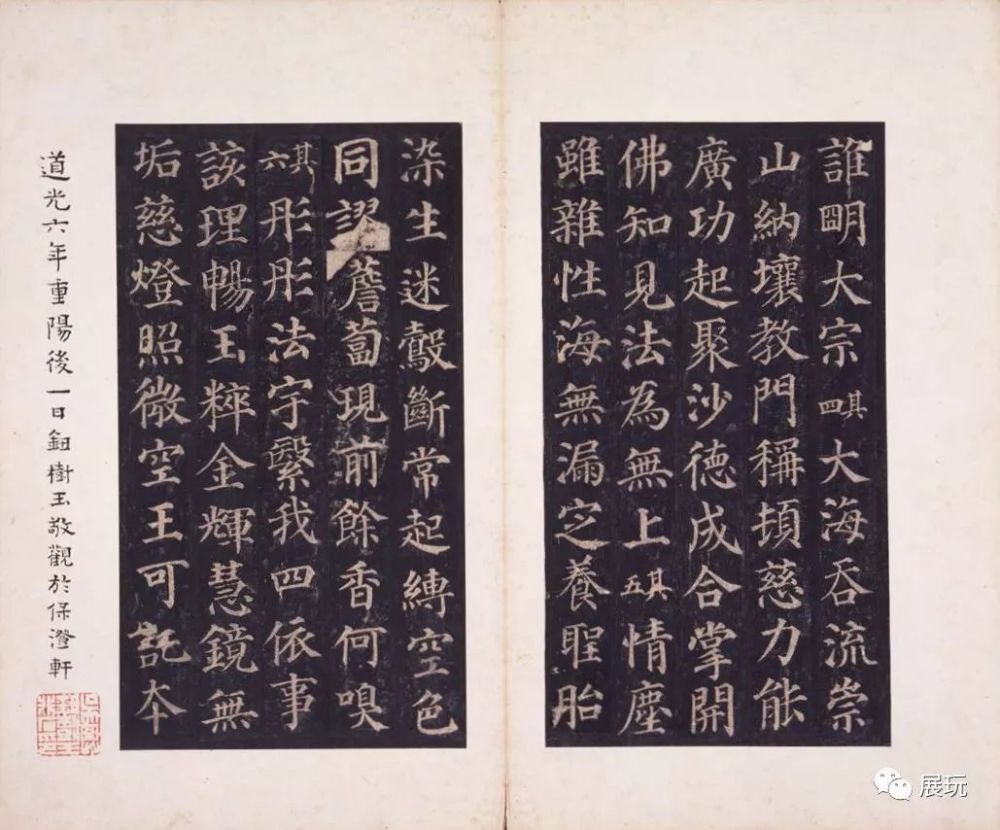 誰朙大宗其四大海吞流崇
山納壤教門稱頊慈力能
廣功起聚沙德成合掌開
佛知見法為無上其五情塵
雖雜性海無漏㝎養聖胎
染生迷㲉斷常起縛空色
同謬薝蔔現前餘香何嗅
其六彤彤法宇繄我四依事
該理暢玉粹金輝慧鏡無
垢慈燈照微空王可託本
道光六年重陽後一日鈕樹玉敬觀於保澄軒
展玩